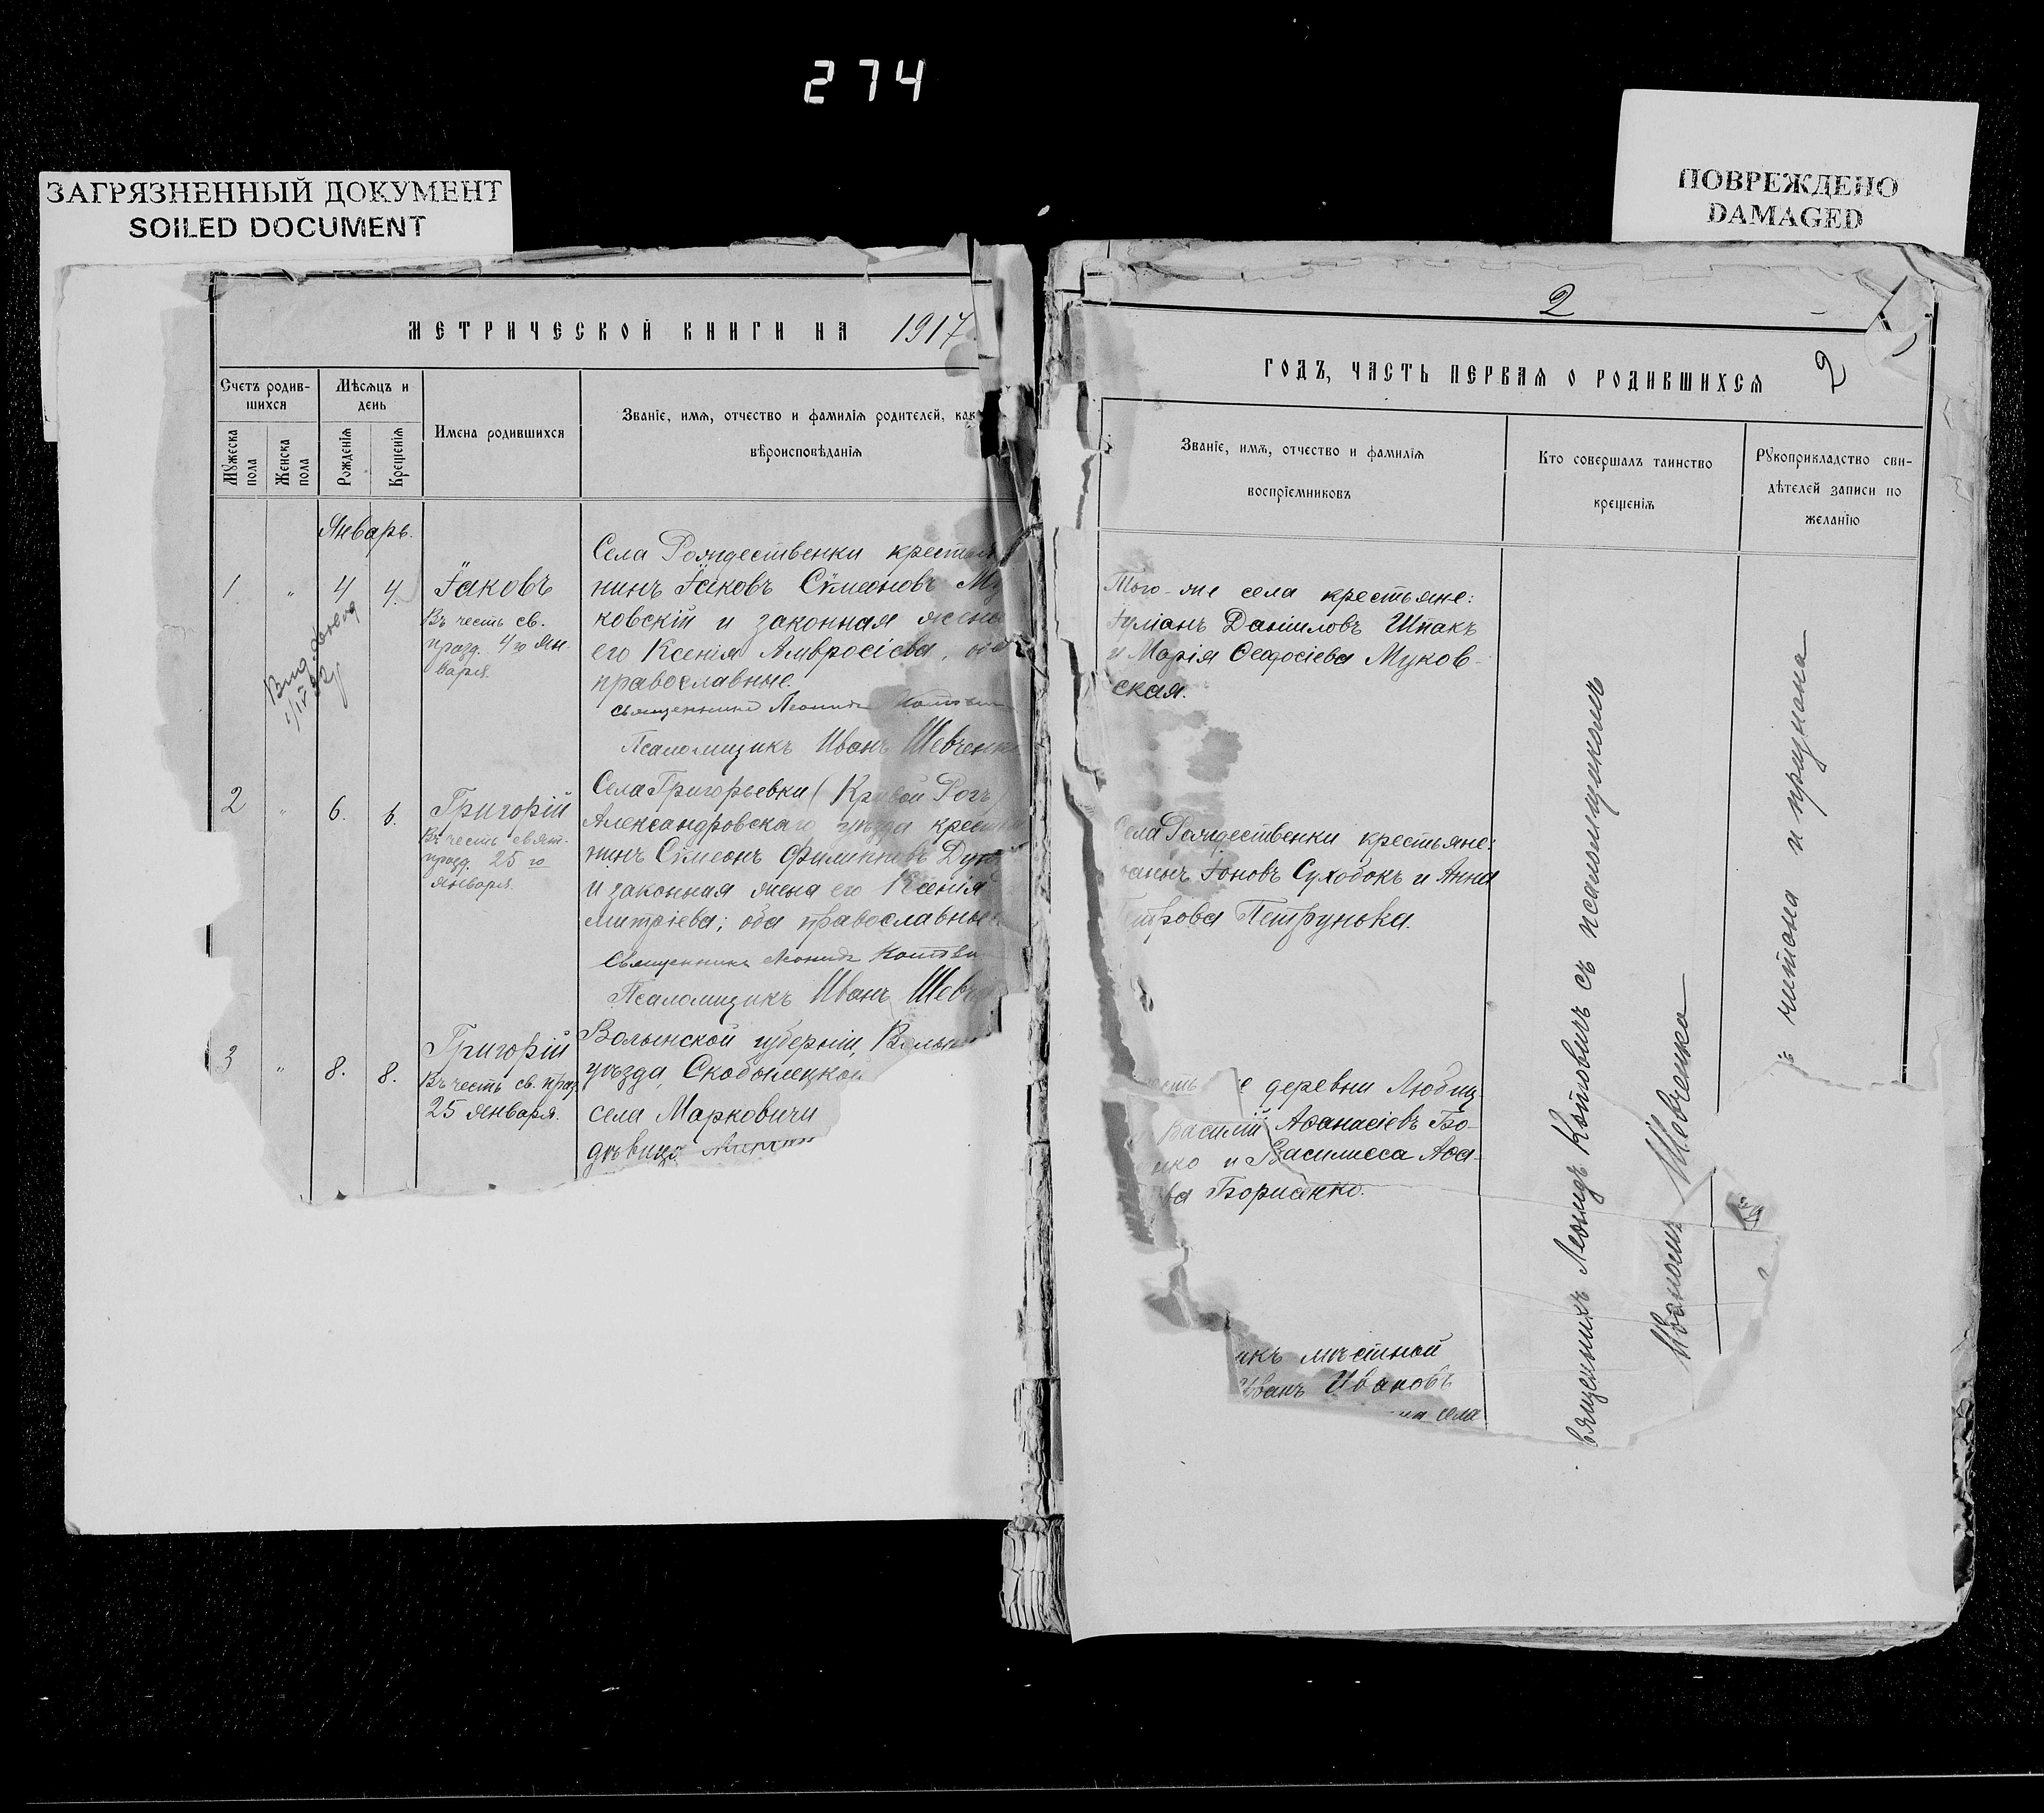 274
ЗАГРЯЗНЕННЫЙ ДОКУМЕНТ
SOILED DOCUMENT
ПОВРЕЖДЕНО
DAMAGED
МЕТРИЧЕСКОЙ КНИГИ НА 1917
Счетъ родив-
шихся
Мѣсяцъ и
день
Имена родившихся
Званіе, имя, отчество и фамилія родителей, как
вѣроисповѣданія
Мужеска
пола
Женска
пола
Рожденія
Крещенія
Январь.
1. " 4 4.
Іаковъ
Въ честь св.
празд. 4го Ян-
варя.
Села Рождественки крестья
нинъ Іаковъ Сѵмеоновъ Му
ковскій и законная жена
его Ксенія Амвросіева, оба
православные.
Священникъ Леонидъ
Псаломщикъ Иванъ Шевченк
2 " 6. 6.
Григорій
Въ честь свят.
празд. 25 го
января.
Села Григорьевки (Кривой Рогъ)
Александровскаго уѣзда крестья
нинъ Сѵмеонъ Филипповъ
и законная жена его Ксенія
митріева; оба православные
Священникъ Леонидъ
Псаломщикъ Иванъ Шевч
3 " 8. 8.
Григорій
Въ честь св. праз.
25 января.
Волынской губерніи,
уѣзда, Скобылецкой
села Марковичи
дѣвица
2
ГОДЪ, ЧАСТЬ ПЕРВАЯ О РОДИВШИХСЯ
2
Званіе, имя, отчество и фамилія
воспріемниковъ
Кто совершалъ таинство
крещенія
Рукоприкладство сви-
дѣтелей записи по
желанію
Того-же села крестьяне:
Іуліанъ Даніиловъ Шпакъ
и Марія Ѳеодосіева Муков-
ская.
ела Рождественки крестьяне:
Іоновъ Суходокъ и Анна
етрова Петрунька.
е деревни Любиц
Василій Аѳанасіевъ Бо-
нко и Василисса Аѳа-
ва Борианко.
икъ мѣстной
Иванъ Ивановъ
села
вященникъ Леонидъ Котовичъ съ псаломщикомъ
Иваномъ Шевченко
читана и